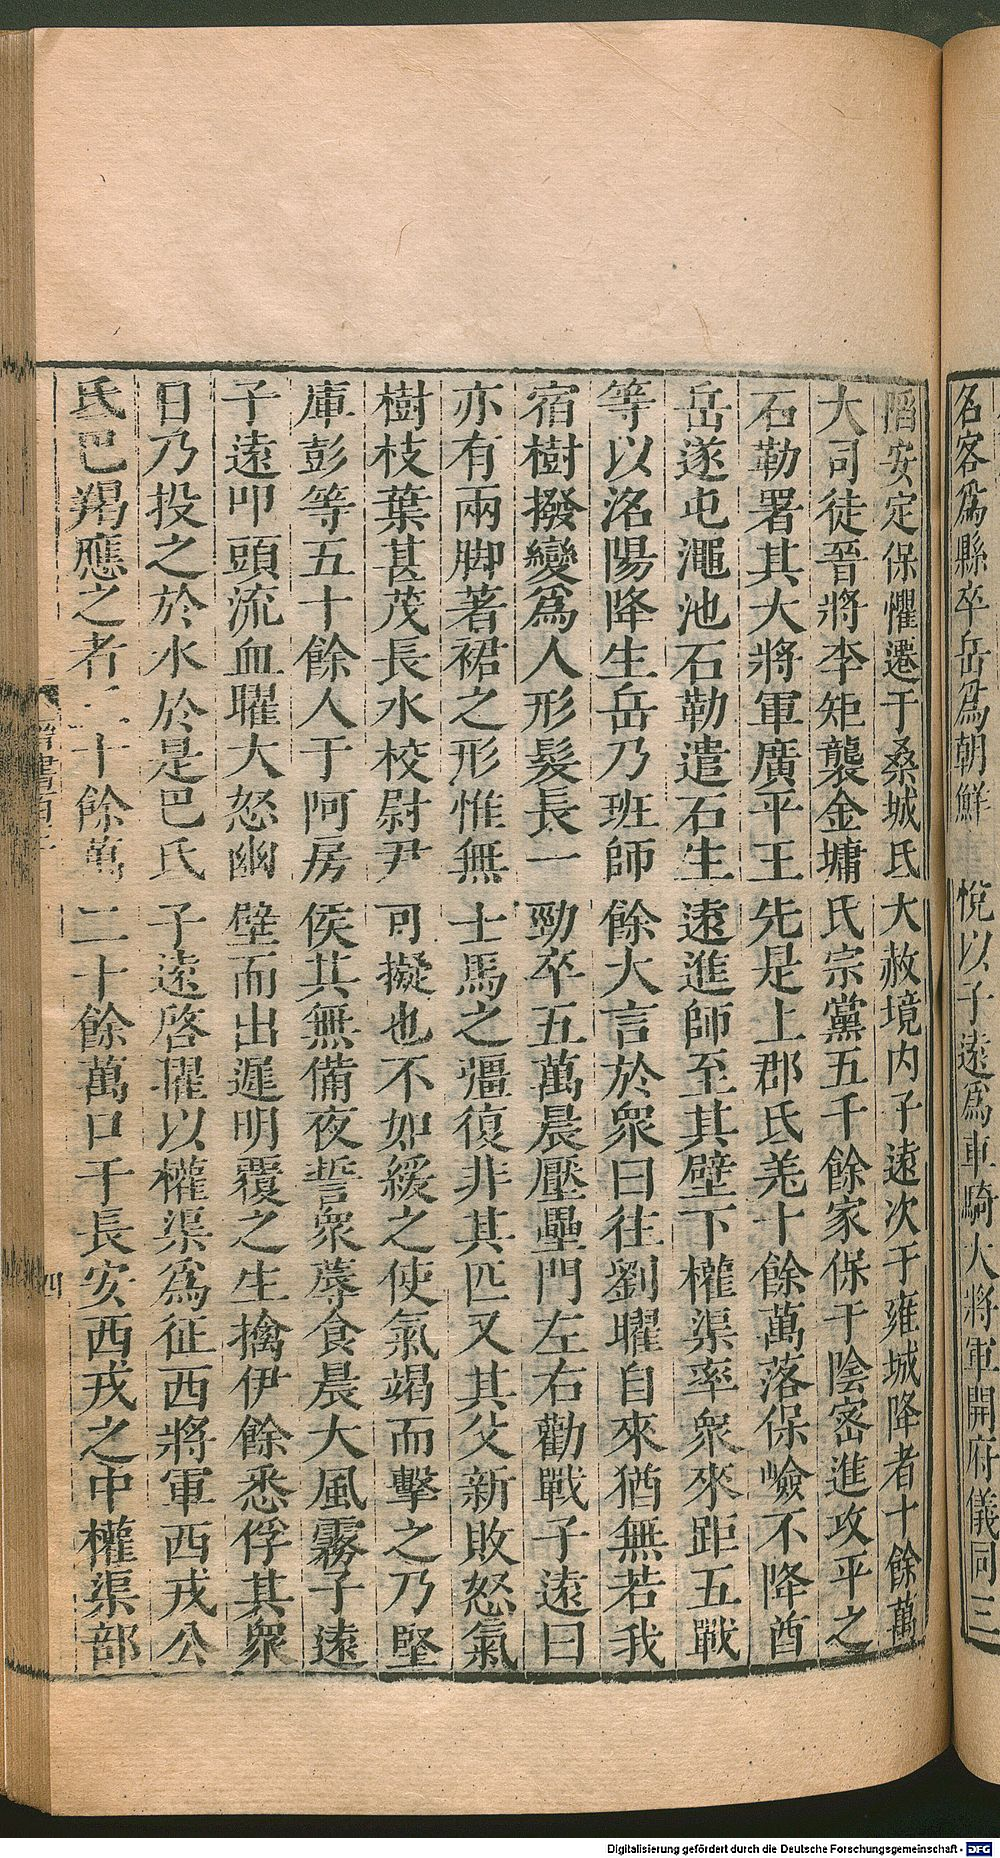 名客爲縣卒岳爲朝鮮悅以子遠爲車騎大將軍開府儀同三
陷安定保懼遷于桑城氐大赦境内子遠次于雍城降者十餘萬
大司徒晉將李矩襲金墉氐宗黨五千餘家保于陰密進攻平之
石勒署其大將軍廣平王先是上郡氐羌十餘萬落保嶮不降酋
岳遂屯澠池石勒遣石生遠進師至其壁下權渠率衆來距五戰
等以洛陽降生岳乃班師餘大言於衆曰往劉曜自來猶無若我
宿樹撥變爲人形髮長一勁卒五萬晨壓壘門左右勸戰子遠曰
亦有兩脚著裙之形惟無士馬之彊復非其匹又其父新敗怒氣
樹枝葉甚茂長水校尉尹可擬也不如緩之使氣竭而擊之乃堅
庫彭等五十餘人于阿房侯其無備夜誓衆蓐食晨大風霧子遠
子遠叩頭流血曜大怒幽壁而出遲明覆之生擒伊餘悉俘其衆
日乃投之於水於是巴氐子遠啓曜以權渠爲征西將軍西戎公
氐巴羯應之者三十餘萬二十餘萬口于長安西戎之中權渠部
晉書百三
四
Digitalisierung gefördert durch die Deutsche Forschungsgemeinschaft - DFG